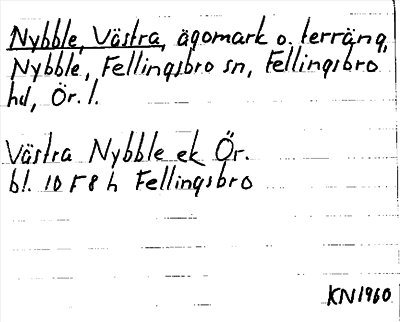 Nybble, Västra, ägomark o. terräng,
Nybble, Fellingsbro sn, Fellingsbro
hd, Ör. l.
Västra Nybble ek Ör.
bl. 10 F 8 h Fellingsbro
KN1960